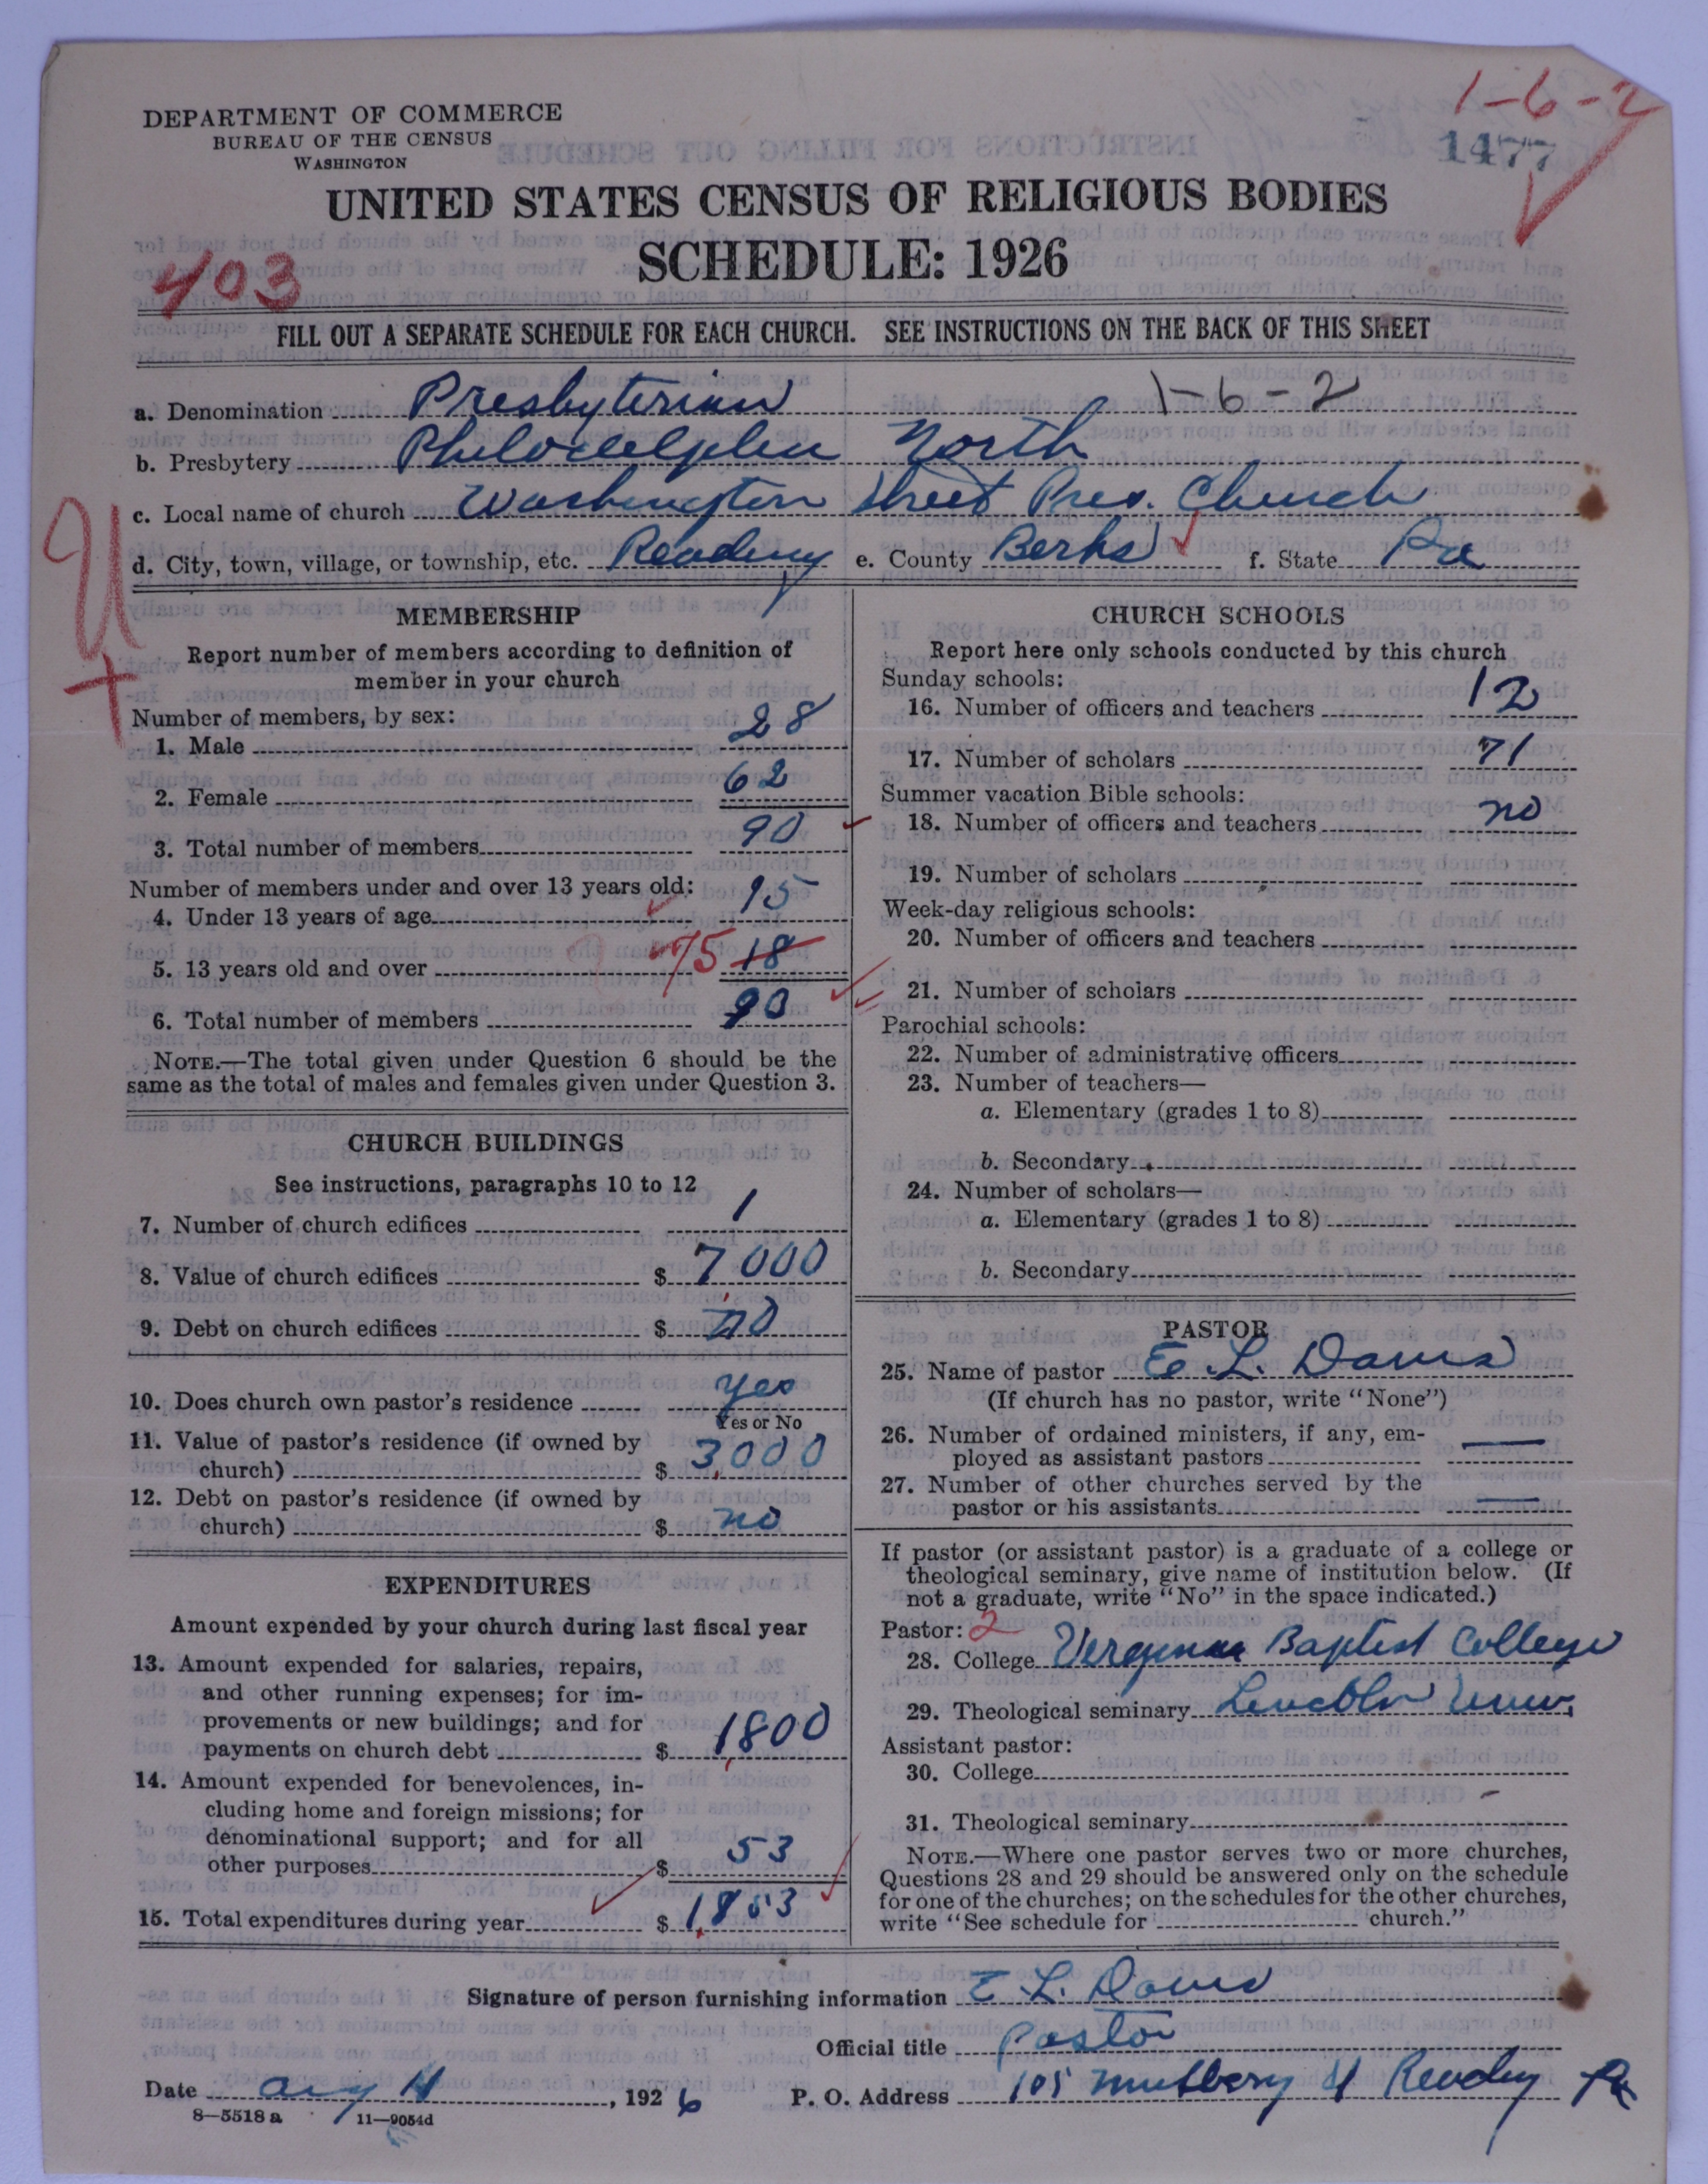 1-6-2
1477
DEPARTMENT OF COMMERCE
BUREAU OF THE CENSUS
WASHINGTON
UNITED STATES CENSUS OF RELIGIOUS BODIES
SCHEDULE: 1926
403
FILL OUT A SEPARATE SCHEDULE FOR EACH CHURCH. SEE INSTRUCTIONS ON THE BACK OF THIS SHEET
a. Denomination Presbyterian 1-6-2
b. Presbytery Philadelphia North
c. Local name of church Washington Street Pres. Church
d. City, town, village, or township, etc. Reading e. County Berks f. State Pa
MEMBERSHIP
Report number of members according to definition of
member in your church
Number of members, by sex:
1. Male 28
2. Female 62
3. Total number of members 90
Number of members under and over 13 years old:
4. Under 13 years of age 15
5. 13 years old and over 75 18
6. Total number of members 90
NOTE.—The total given under Question 6 should be the
same as the total of males and females given under Question 3.
CHURCH BUILDINGS
See instructions, paragraphs 10 to 12
7. Number of church edifices 1
8. Value of church edifices $ 7000
9. Debt on church edifices $ no
10. Does church own pastor's residence yes
Yes or No
11. Value of pastor's residence (if owned by
church) $ 3,000
12. Debt on pastor's residence (if owned by
church) $ no
EXPENDITURES
Amount expended by your church during last fiscal year
13. Amount expended for salaries, repairs,
and other running expenses; for im-
provements or new buildings; and for
payments on church debt $ 1,800
14. Amount expended for benevolences, in-
cluding home and foreign missions; for
denominational support; and for all
other purposes $ 53
15. Total expenditures during year $ 1,853
CHURCH SCHOOLS
Report here only schools conducted by this church
Sunday schools:
16. Number of officers and teachers 12
17. Number of scholars 71
Summer vacation Bible schools:
18. Number of officers and teachers no
19. Number of scholars
Week-day religious schools:
20. Number of officers and teachers
21. Number of scholars
Parochial schools:
22. Number of administrative officers
23. Number of teachers—
a. Elementary (grades 1 to 8)
b. Secondary
24. Number of scholars—
a. Elementary (grades 1 to 8)
b. Secondary
PASTOR
25. Name of pastor E. L. Davis
(If church has no pastor, write "None")
26. Number of ordained ministers, if any, em-
ployed as assistant pastors —
27. Number of other churches served by the
pastor or his assistants —
If pastor (or assistant pastor) is a graduate of a college or
theological seminary, give name of institution below. (If
not a graduate, write "No" in the space indicated.)
Pastor: 2
28. College Verginia Baptist College
29. Theological seminary Lincoln Univ.
Assistant pastor:
30. College
31. Theological seminary -
NOTE.—Where one pastor serves two or more churches,
Questions 28 and 29 should be answered only on the schedule
for one of the churches; on the schedules for the other churches,
write "See schedule for church."
Signature of person furnishing information E. L. Davis
Official title Pastor
Date , 1926 P. O. Address 105 Mulbery St Reading Pa
8—5518a 11—9054d